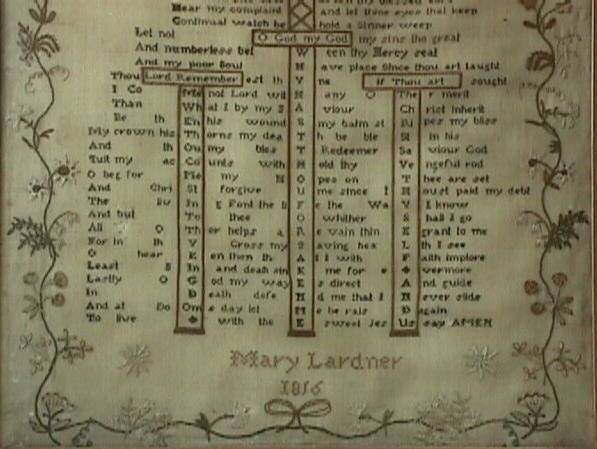 Hear my complaint and let thine eyes that keep
Continual watch be hold a Sinner weep
Let not O God my God my sins tho great
And numberless bet W een thy Mercy seat
And my poor Soul H ave place Since thou art taught
Thou Lord Remember est th Y ne If Thou art sought
I Co Me not Lord wit H any O The r merit
Than Wh at I by my S A viour Ch rist inherit
Be th En his wound S my balm st Ri pes my bliss
My crown his Th orns my dea T h be ble St in his
And th Ou my bles T Redeemer Sa viour God
Quit my ac Co unts with H old thy Ve ngeful rod
O beg for Me my H O pes on T hee are set
And Chri St forgive U me since I M oust paid my debt
The liv In g Font the li F e the Wa Y I know
And but To thee O whither S hall I go
All O Th er helps a R e vain thin E grant to me
For in th Y Cross my S aving hea L th I see
O hear K en then th A t I with F aith implore
Least S In and death sin K me for e vermore
Lastly O G od my way E s direct A nd guide
In D eath defe N d me that I N ever slide
And at Do Om s day let M e be rais D again
To live with the E sweet Jes Us say AMEN
Mary Lardner
1816